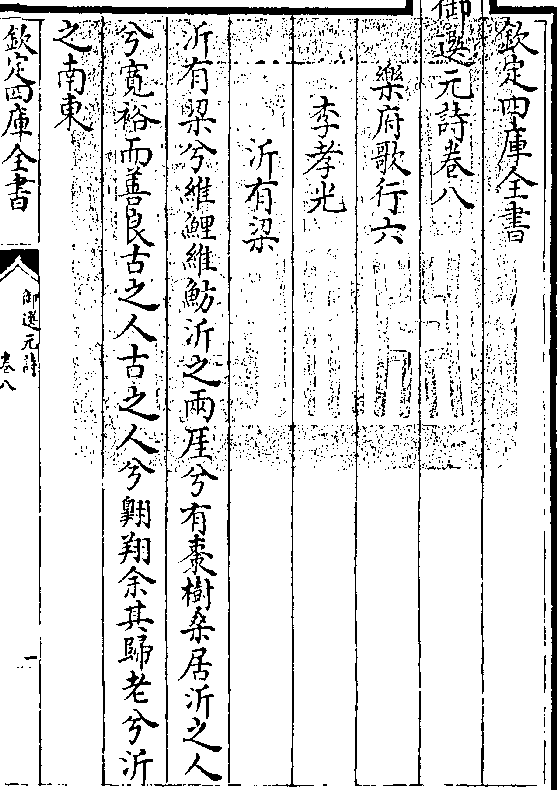 欽定四庫全書
御選元詩卷八
樂府歌行六
李孝光
沂有梁
沂有梁兮維鯉維魴沂之兩厓兮有棗樹桑居沂之人
兮寛裕而善良古之人古之人兮翺翔余其歸老兮沂
之南東
欽定四庫全書
御選元詩
卷八
一